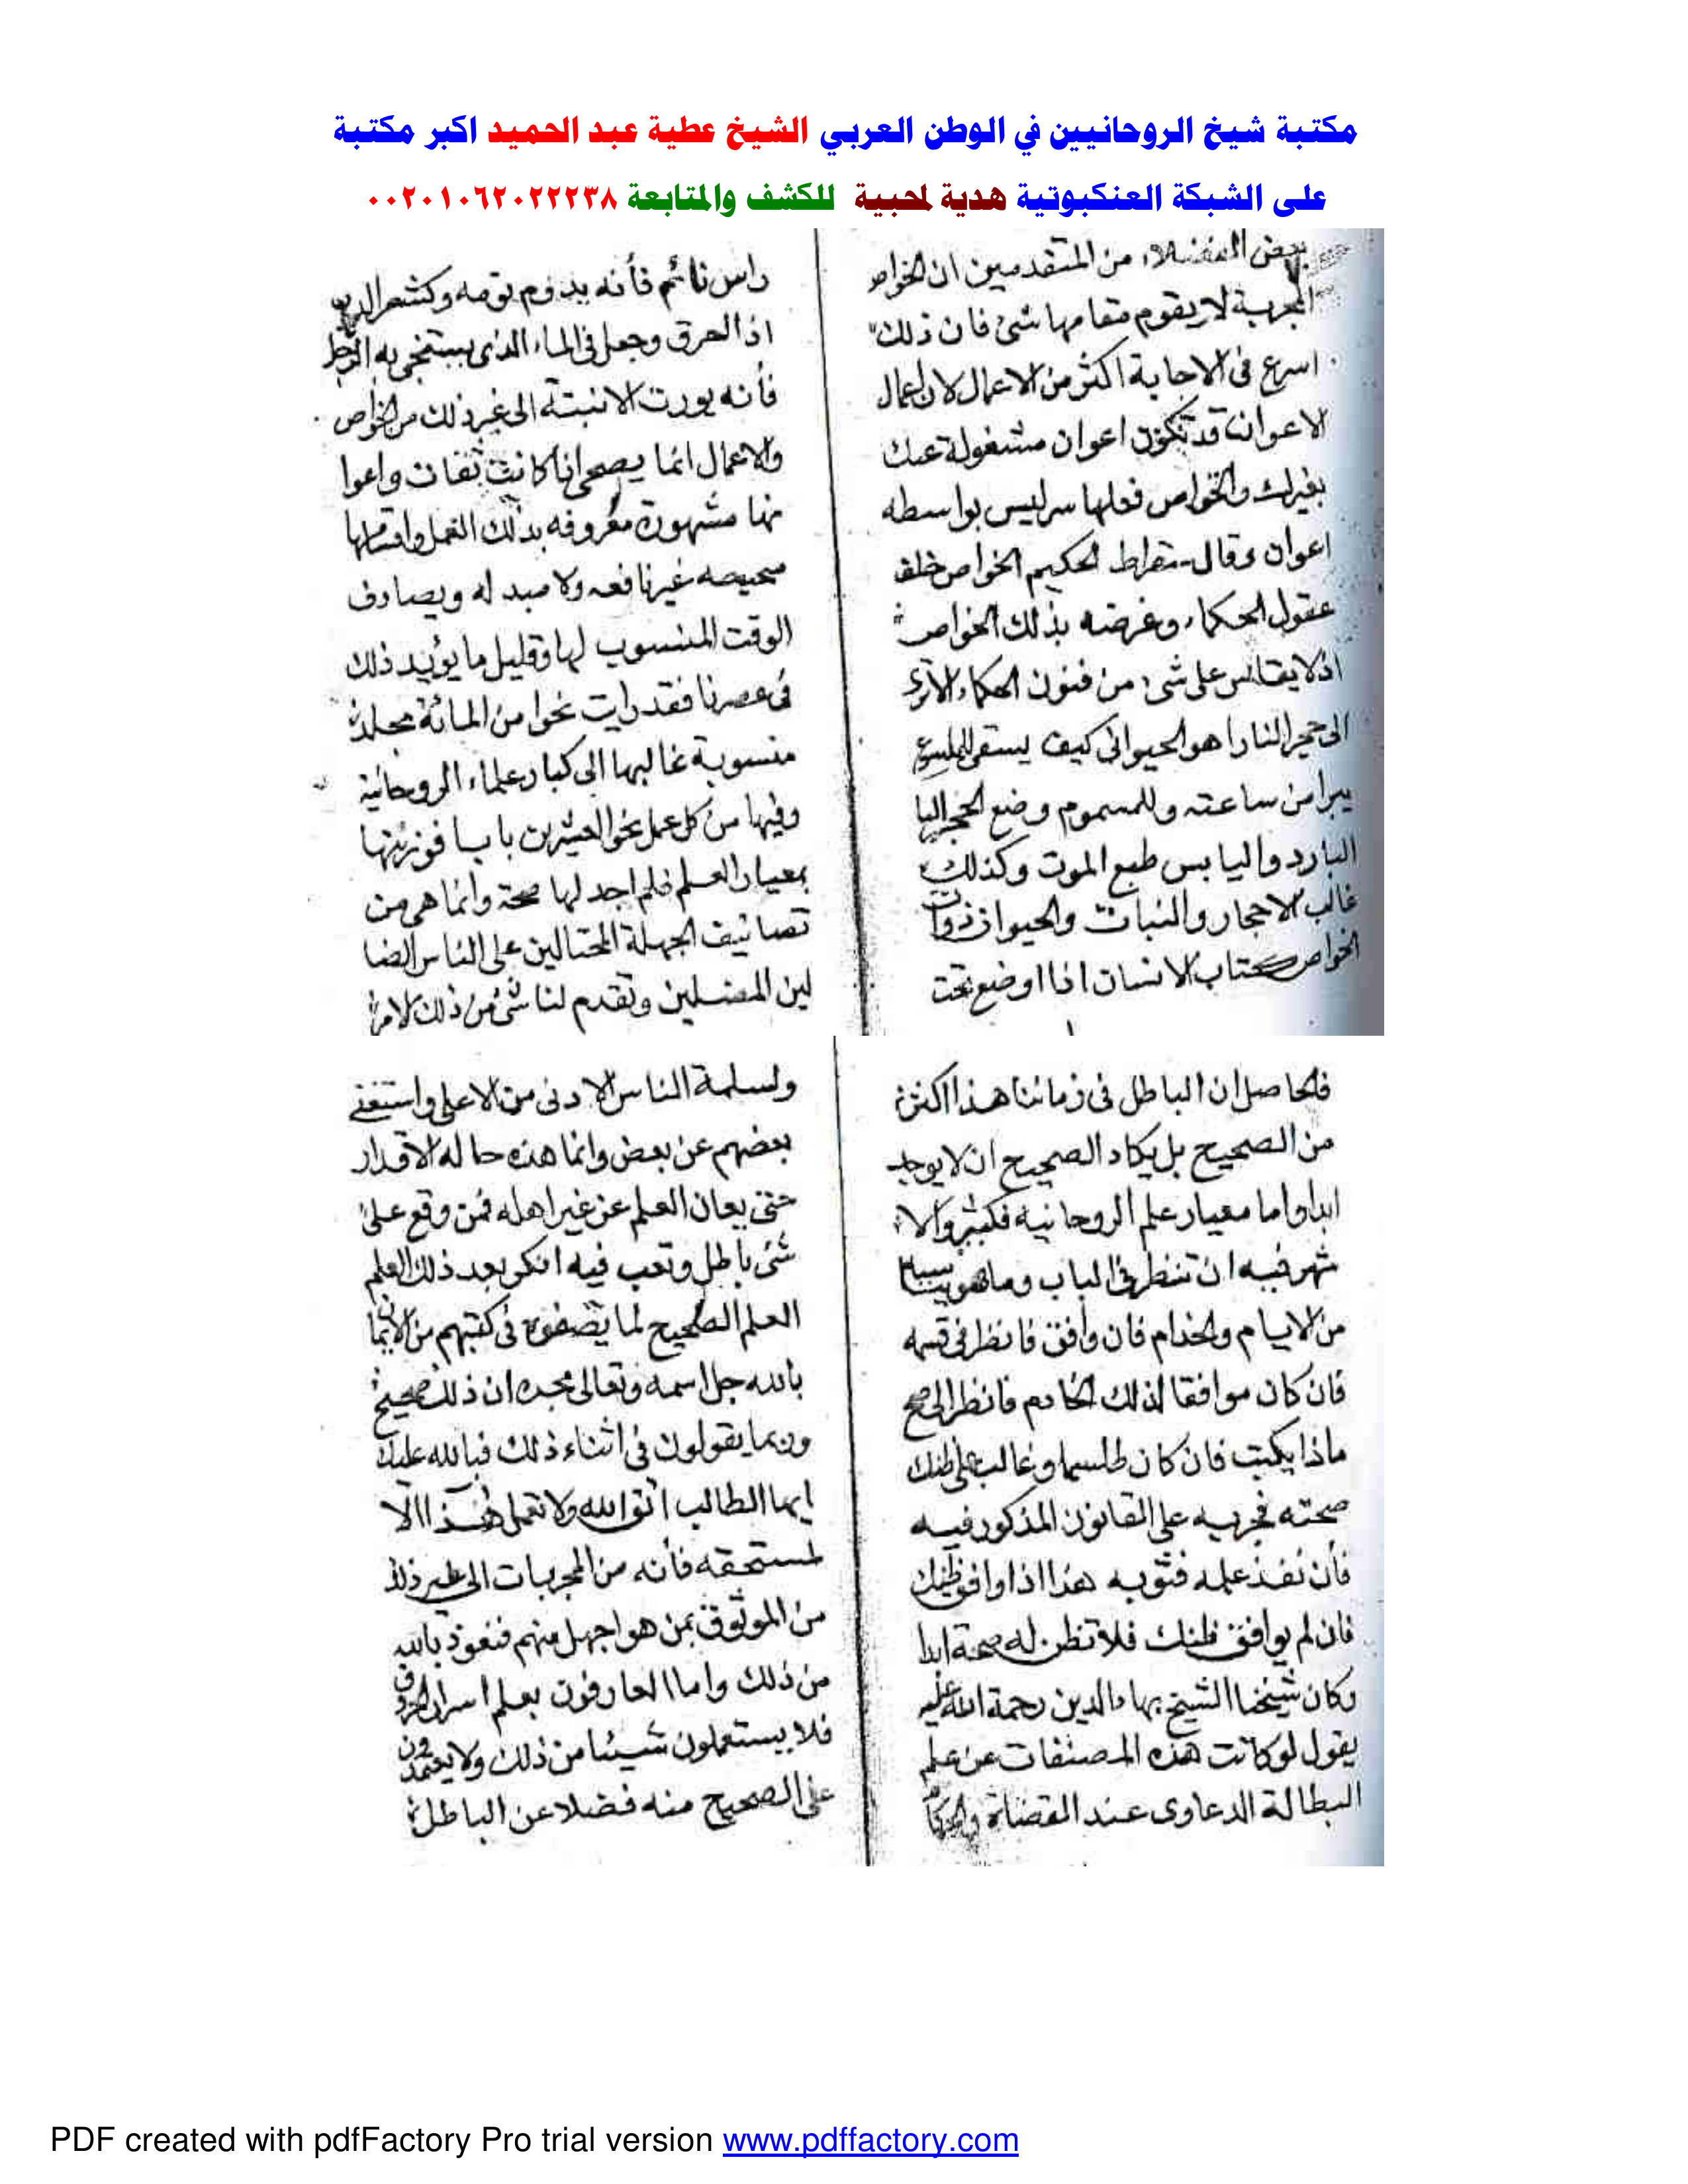 مكتبة شيخ الروحانيين في الوطن العربي الشيخ عطية عبد الحميد اكبر مكتبة
على الشبكة العنكبوتية هدية لمحبية للكشف والمتابعة ٠٠٢٠١٠٦٢٠٢٢٢٣٨
بعض الفضلاء من المتقدمين ان الخواص
المجربة لا يقوم مقامها شئ فان ذلك
اسرع فى الاجابة اكثر من الاعمال لان اعمال
الاعوان قد تكون اعوان مشغولة عنك
بغيرك والخواص فعلها سر ليس بواسطه
اعوان وقال سقراط الحكيم الخواص خلف
عقول الحكماء وغرضه بذلك الخواص
اذ لا يقاس على شئ من فنون الحكماء الا
الى حجر النار اهو الحيوانى كيف يسقى للملسوع
يبرا من ساعته وللمسموم وضع الحجر
البارد واليابس طبع الموت وكذلك
غالب الاحجار والنبات والحيوان ذوات
الخواص الانسان اذا اوضع تحت
راس نائم فأنه يدوم نومه وكشعر
اذا احرق وجعل فى الماء الذى يستنجى به الرجل
فأنه يورث الى غير ذلك من الخواص
والاعمال انما يصح اذا كانت ثقات واعوا
نها مشهورة معروفه بذلك العمل
صحيحه غير نافعه ولا له ويصادف
الوقت المنسوب لها وقليل ما يؤيد ذلك
فى عصرنا فقد رايت نحوا من المائة مجلدة
منسوبة غالبها الى كبار علماء الروحانية
وفيها من كل عمل نحو العشرين بابا فوزنتها
بمعيار العلم فلم اجد لها صحة وانما هى من
تصانيف الجهلة المحتالين على الناس الضا
لين المضلين وتقدم لنا شئ من ذلك
فالحاصل ان الباطل فى زماننا هذا اكثر
من الصحيح بل يكاد الصحيح ان لا يوجد
ابدا واما معيار علم الروحانية فكثير والا
شهر فيه ان تنظر فى الباب وما هو
من الايام والخدام فان وافق فانظر فى قسمه
فان كان موافقا لذلك الخادم فانظر الى
ماذا يكتب فان كان طلسما وغالب على ظنك
صحته فجربه على القانون المذكور فيه
فأن نفذ عمله فثق به هذا اذا وافق ظنك
فان لم يوافق ظنك فلا تظن له صحة ابدا
وكان شيخنا الشيخ بهاء الدين رحمة الله عليه
يقول لو كانت هذه المصنفات عن علم
البطالة الدعاوى عند القضاة والحكام
ولسلمة الناس الادنى من الاعلى واستغنى
بعضهم عن بعض وانما هذه حاله الاقدار
حتى يصان العلم عن غير اهله فمن وقع على
شئ باطل وتعب فيه انكر بعد ذلك العلم
العلم الصحيح لما يضعون فى كتبهم من الايمان
بالله جل اسمه وتعالى مجده ان ذلك صحيح
وربما يقولون فى اثناء ذلك فبالله عليك
ايها الطالب اتق الله ولا تعمل هذا الا
لمستحقه فأنه من المجربات الى غير ذلك
من الموثوق بمن هو اجهل منهم فنعوذ بالله
من ذلك واما العارفون بعلم اسرار الحروف
فلا يستعملون شيئا من ذلك ولا يعتمدون
على الصحيح منه فضلا عن الباطل
PDF created with pdfFactory Pro trial version www.pdffactory.com